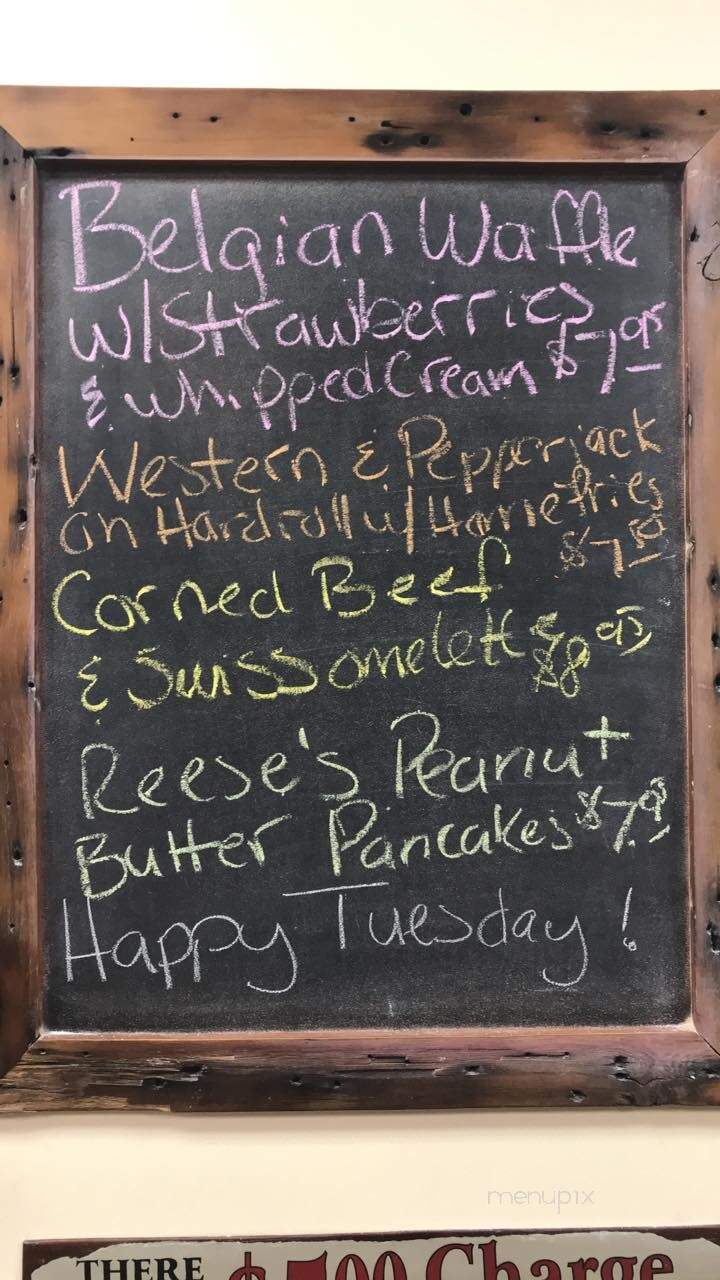 Belgian Waffle
w/Strawberries
& Whipped Cream $7.95
Western & Pepperjack
on Hardroll w/ Homefries
$7.50
Corned Beef
& Swiss omelette $8.95
Reese's Peanut
Butter Pancakes $7.95
Happy Tuesday!
menupix
THERE $ .00 Charge